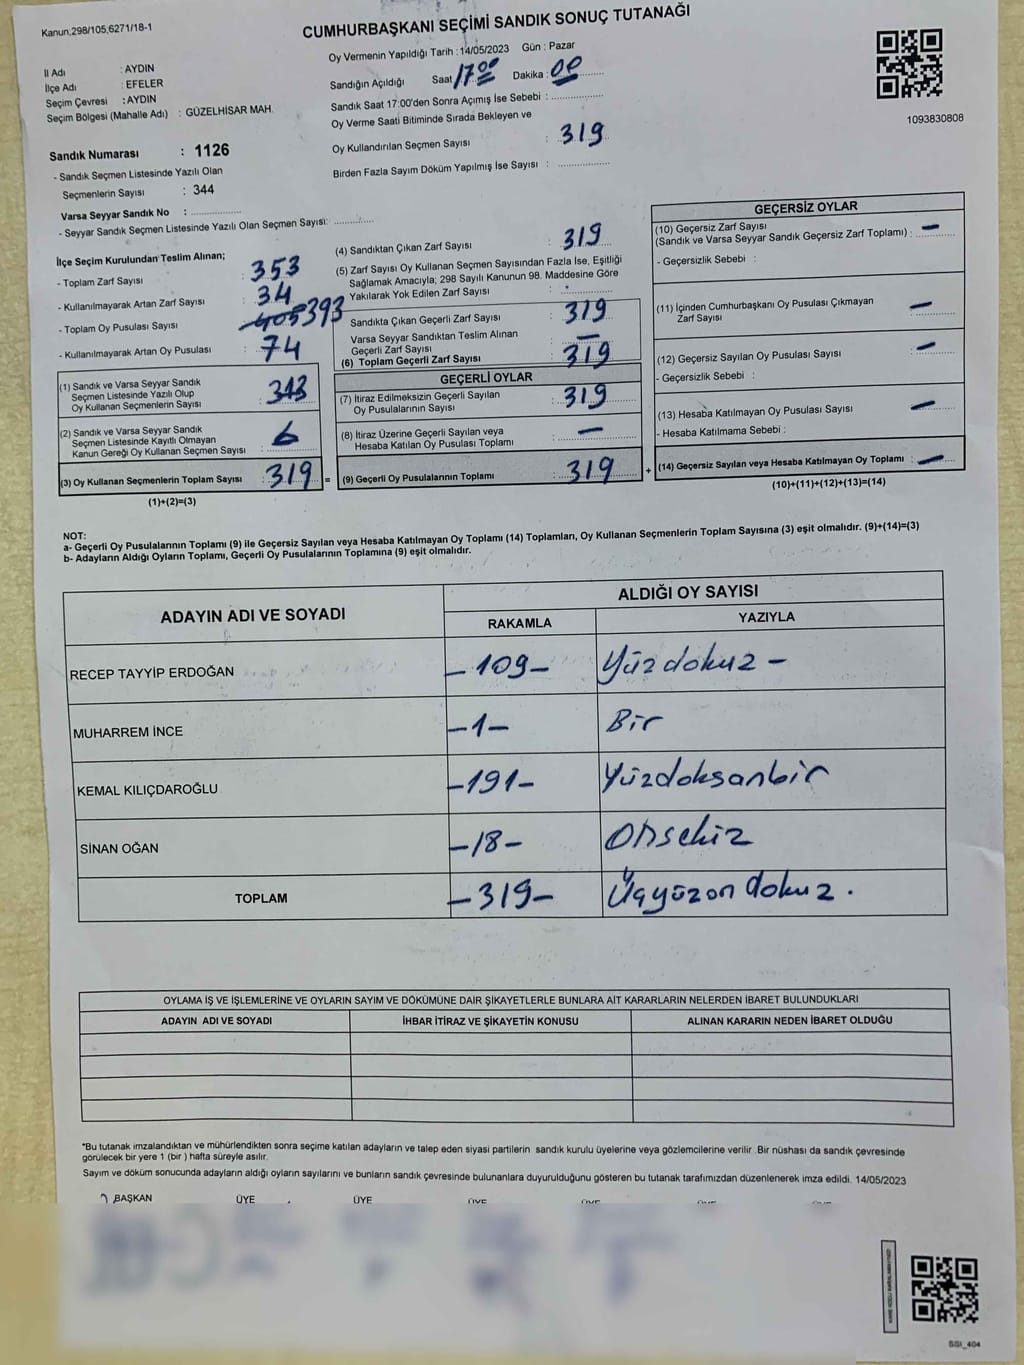 Kanun,298/105,6271/18-1
CUMHURBAŞKANI SEÇİMİ SANDIK SONUÇ TUTANAĞI
Oy Vermenin Yapıldığı Tarih :14/05/2023 Gün : Pazar
İl Adı : AYDIN
İlçe Adı : EFELER
Seçim Çevresi : AYDIN
Seçim Bölgesi (Mahalle Adı) : GÜZELHİSAR MAH.
Sandığın Açıldığı Saat 17 00 Dakika : 00
Sandık Saat 17:00'den Sonra Açımış İse Sebebi :
Oy Verme Saati Bitiminde Sırada Bekleyen ve
Oy Kullandırılan Seçmen Sayısı : 319
Birden Fazla Sayım Döküm Yapılmış İse Sayısı :
1093830808
Sandık Numarası : 1126
- Sandık Seçmen Listesinde Yazılı Olan
Seçmenlerin Sayısı : 344
Varsa Seyyar Sandık No :
- Seyyar Sandık Seçmen Listesinde Yazılı Olan Seçmen Sayısı:
İlçe Seçim Kurulundan Teslim Alınan;
- Toplam Zarf Sayısı : 353
- Kullanılmayarak Artan Zarf Sayısı : 34
- Toplam Oy Pusulası Sayısı : 405 393
- Kullanılmayarak Artan Oy Pusulası : 74
(1) Sandık ve Varsa Seyyar Sandık
Seçmen Listesinde Yazılı Olup
Oy Kullanan Seçmenlerin Sayısı : 313
(2) Sandık ve Varsa Seyyar Sandık
Seçmen Listesinde Kayıtlı Olmayan
Kanun Gereği Oy Kullanan Seçmen Sayısı : 6
(3) Oy Kullanan Seçmenlerin Toplam Sayısı : 319 =
(1)+(2)=(3)
(4) Sandıktan Çıkan Zarf Sayısı : 319
(5) Zarf Sayısı Oy Kullanan Seçmen Sayısından Fazla İse, Eşitliği
Sağlamak Amacıyla; 298 Sayılı Kanunun 98. Maddesine Göre
Yakılarak Yok Edilen Zarf Sayısı :
Sandıkta Çıkan Geçerli Zarf Sayısı : 319
Varsa Seyyar Sandıktan Teslim Alınan
Geçerli Zarf Sayısı : —
(6) Toplam Geçerli Zarf Sayısı 319
GEÇERLİ OYLAR
(7) İtiraz Edilmeksizin Geçerli Sayılan
Oy Pusulalarının Sayısı : 319
(8) İtiraz Üzerine Geçerli Sayılan veya
Hesaba Katılan Oy Pusulası Toplamı : —
(9) Geçerli Oy Pusulalarının Toplamı : 319 +
GEÇERSİZ OYLAR
(10) Geçersiz Zarf Sayısı
(Sandık ve Varsa Seyyar Sandık Geçersiz Zarf Toplamı) : —
- Geçersizlik Sebebi :
(11) İçinden Cumhurbaşkanı Oy Pusulası Çıkmayan
Zarf Sayısı : —
(12) Geçersiz Sayılan Oy Pusulası Sayısı : —
- Geçersizlik Sebebi :
(13) Hesaba Katılmayan Oy Pusulası Sayısı : —
- Hesaba Katılmama Sebebi :
(14) Geçersiz Sayılan veya Hesaba Katılmayan Oy Toplamı : —
(10)+(11)+(12)+(13)=(14)
NOT:
a- Geçerli Oy Pusulalarının Toplamı (9) ile Geçersiz Sayılan veya Hesaba Katılmayan Oy Toplamı (14) Toplamları, Oy Kullanan Seçmenlerin Toplam Sayısına (3) eşit olmalıdır. (9)+(14)=(3)
b- Adayların Aldığı Oyların Toplamı, Geçerli Oy Pusulalarının Toplamına (9) eşit olmalıdır.
ADAYIN ADI VE SOYADI
ALDIĞI OY SAYISI
RAKAMLA YAZIYLA
RECEP TAYYİP ERDOĞAN –109– Yüzdokuz –
MUHARREM İNCE –1– Bir
KEMAL KILIÇDAROĞLU –191– Yüzdoksanbir
SİNAN OĞAN –18– Onsekiz
TOPLAM –319– Üçyüzon dokuz .
OYLAMA İŞ VE İŞLEMLERİNE VE OYLARIN SAYIM VE DÖKÜMÜNE DAİR ŞİKAYETLERLE BUNLARA AİT KARARLARIN NELERDEN İBARET BULUNDUKLARI
ADAYIN ADI VE SOYADI İHBAR İTİRAZ VE ŞİKAYETİN KONUSU ALINAN KARARIN NEDEN İBARET OLDUĞU
*Bu tutanak imzalandıktan ve mühürlendikten sonra seçime katılan adayların ve talep eden siyasi partilerin sandık kurulu üyelerine veya gözlemcilerine verilir .Bir nüshası da sandık çevresinde
görülecek bir yere 1 (bir ) hafta süreyle asılır.
Sayım ve döküm sonucunda adayların aldığı oyların sayılarını ve bunların sandık çevresinde bulunanlara duyurulduğunu gösteren bu tutanak tarafımızdan düzenlenerek imza edildi. 14/05/2023
BAŞKAN ÜYE ÜYE ÜYE ÜYE ÜYE ÜYE
SSI_404